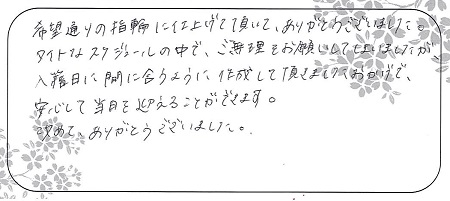 希望通りの指輪に仕上げて頂いて、ありがとうございました。
タイトなスケジュールの中で、ご無理をお願いしてしまいましたが
入籍日に間に合うように作成して頂きましたおかげで、
安心して当日を迎えることができます。
改めて、ありがとうございました。